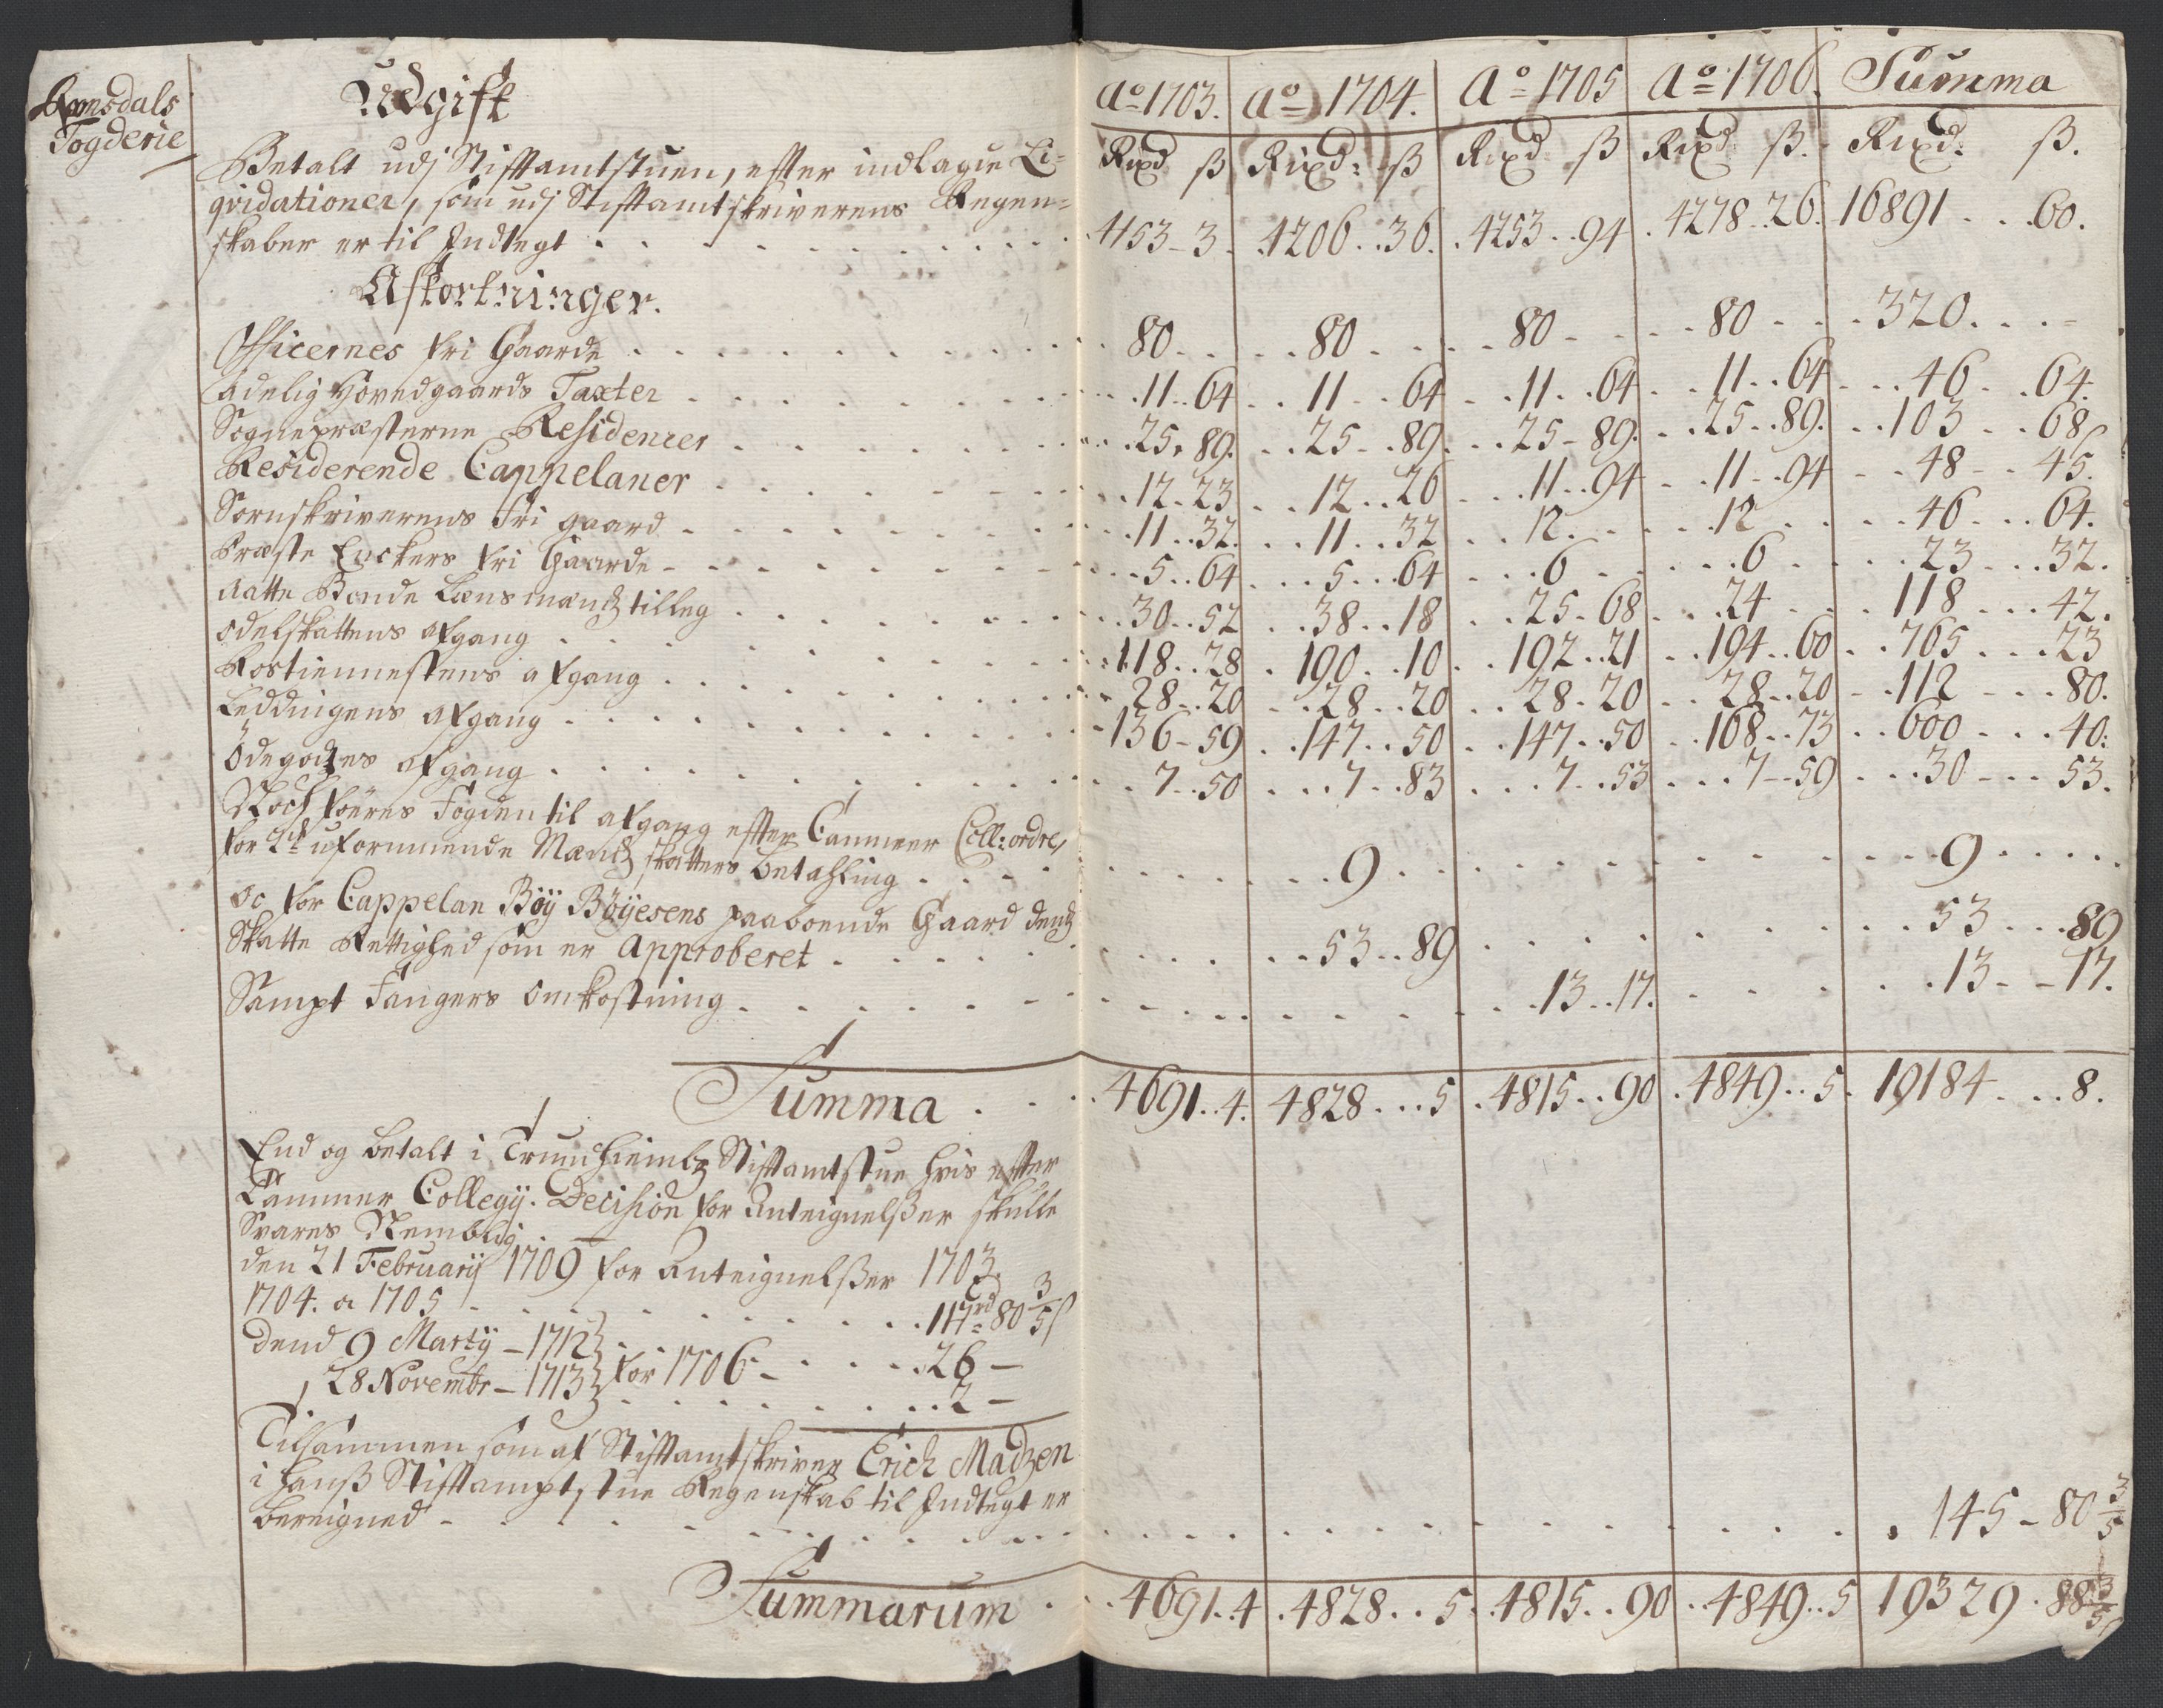 Romsdals
Fogderie
Udgift
Ao 1703. Ao 1704. Ao 1705 Ao 1706. Summa
Rixd ß Rixd: ß Rixd: ß Rixd ß. Rixd: ß.
Betalt udj Stifftamtstuen, efter indlagde Li-
qvidationer, som udj Stifftamtskriverens Regen-
skaber er til Indtegt . . . 4153 - 3. 4206 . . 36. 4253 . . 94 4278 . . 26. 16891 . . . 60.
Afkortninger.
Officernes fri Gaarde . . . 80 . . . 80 . . . 80 . . . 80 . . . 320 . . . -
Adelig Hovedgaards Taxter . . . 11 . . 64 11 . . 64 11 . . 64 11 . . 64 46 . . 64.
Sognepræsterne Residencer . . . 25 . 89. 25 . . 89. 25 - 89. 25 . . 89. 103 . . 68
Residerende Cappelaner . . . 12 . 23 12 . . 26 11 . . 94 11 . . 94 48 . . 45.
Sornskriverens Fri gaard . . . 11 . . 32. 11 . . 32 12 . . . 12 . . . 46 . . . 64.
Præste Enckers fri Gaarde . . . 5 . . 64 5 . . . 64 6 . . . 6 . . . 23 . . . 32.
Aatte Bonde Lensmændz tilleg . . . 30 . . 52 38 . . 18 25 - 68 24 . . . 118 . . . 42.
Odelskattens afgang . . . 118 . . 28 190 . . 10 192 . . 21 194 . . 60 765 . . . 23
Rostienestens afgang . . . 28 . . 20 28 . . 20 28 . 20 28 . . 20 112 . . . 80.
Leddingens afgang . . . 136 - 59 147 . . 50 147 . . 50 168 . . 73 600 . . . 40:
Ödegodtzes afgang . . . 7 . . 50 7 . . 83 7 . . 53 7 - 59 30 . . . 53.
Noch föres Fogden til afgang efter Cammer Coll: ordre,
for uformuende Mændz skatters betahling . . . 9 . . . 9 . . .
Oc for Cappelan Böy Böyesens paaboende Gaard dendz
Skatte Rettighed som er Approberet . . . 53 . . 89 . . . 53 . . . 89
Sampt Fangers Omkostning . . . 13 . . 17. . . . 13 - - 17.
Summa . . . 4691 . . 4. 4828 . . . 5 4815 . . 90 4849 . . 5. 19184 . . . 8.
End og betalt i Trundhiembs Stifftamtstue hvis efter
Cammer Collegij Decision for Anteignelßer skulle
Svares Nemblig.
den 21 Februarij 1709 for Anteignelßer 1703.
1704. a 1705 . . . 117rd 80 3/5 ß
dend 9 Martij - 1712 } for 1706 . . . 26 -
28 Novembr - 1713 } . . . 2 -
Tilsammen som af Stifftamtskriver Erich Madzen
i hanß Stifftamptstue Regenskab til Indtegt er
beregned - . . . 145 - 80 3/5
Summarum . . . 4691 . . 4 4828 . . 5. 4815 . . 90 4849 . . 5 19329 . 88 3/5 ß